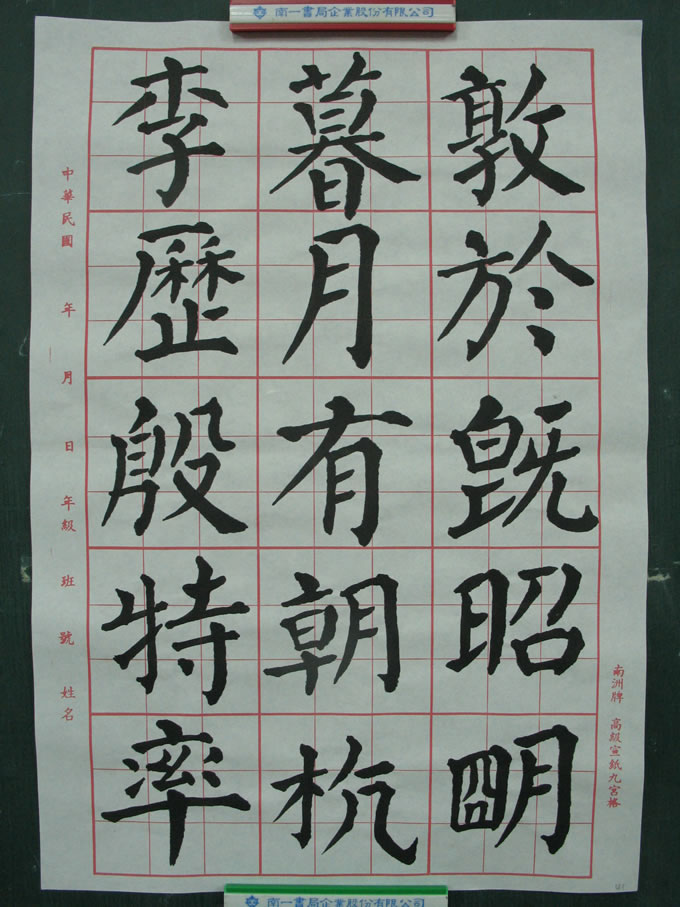 南一書局企業股份有限公司
敦於既昭朙
暮月有朝杭
李歷殷特率
中華民國 年 月 日 年級 班 號 姓名
南洲牌 高級宣紙九宮格
南一書局企業股份有限公司